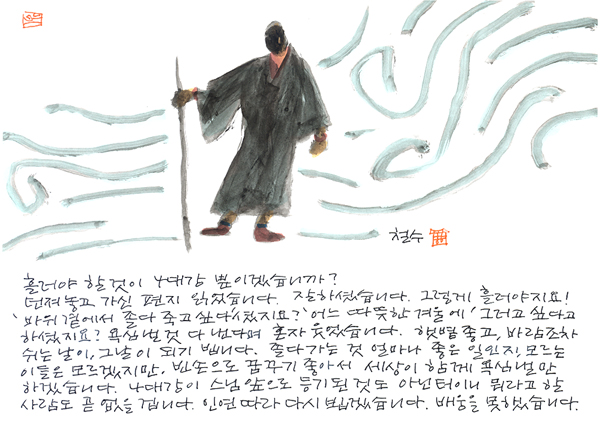 철수
흘러야 할것이 4대강 뿐이겠습니까?
던져놓고 가신 편지 읽었습니다. 잘하셨습니다. 그렇게 흘러야지요!
'바위곁에서 졸다 죽고싶다'셨지요? 어느 따뜻한 겨울에 '그러고 싶다'고
하셨지요? 욕심낼것 다 낸다며 혼자 웃었습니다. 햇볕 좋고, 바람조차
쉬는 날이, 그날이 되기 빕니다. 졸다가는 것 얼마나 좋은 일인지, 모르는
이들은 모르겠지만, 빈손으로 꿈꾸기 좋아서 세상이 함께 욕심낼만
하겠습니다. 4대강이 스님앞으로 등기된것도 아닌터이니 뭐라고 할
사람도 곧 없을겁니다. 인연따라 다시 뵙겠습니다. 배웅을 못했습니다.